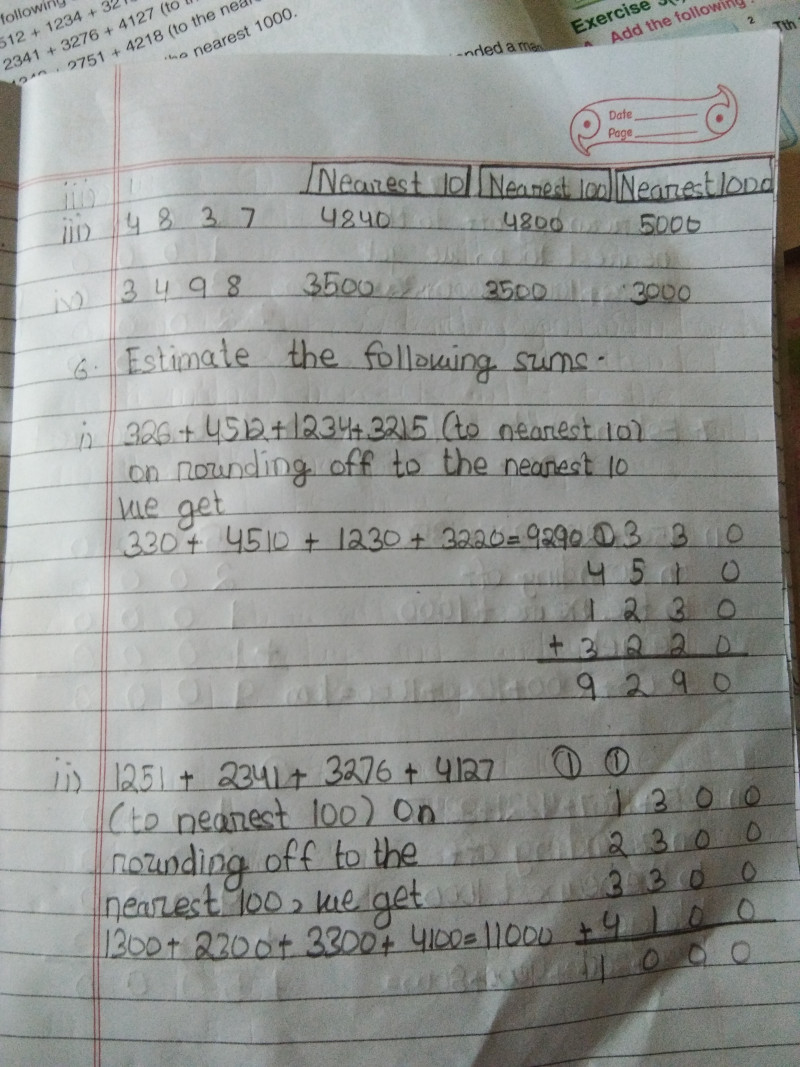 following
512 + 1234 + 321
2341 + 3276 + 4127 (to
2751 + 4218 (to the near
nearest 1000.
nded a
Exercise
Add the following
2
Tth
Date
Page
Nearest 10 Nearest 100 Nearest 1000
iii) 4 8 3 7 4840 4800 5000
iv) 3 4 9 8 3500 3500 3000
6. Estimate the following sums.
i) 326 + 4512 + 1234 + 3215 (to nearest 10)
on rounding off to the nearest 10
we get
330 + 4510 + 1230 + 3220 = 9290 ① 3 3 0
4 5 1 0
1 2 3 0
+ 3 2 2 0
9 2 9 0
ii) 1251 + 2341 + 3276 + 4127 ① ①
(to nearest 100) On 1 3 0 0
rounding off to the 2 3 0 0
nearest 100, we get 3 3 0 0
1300 + 2300 + 3300 + 4100 = 11000 + 4 1 0 0
1 0 0 0